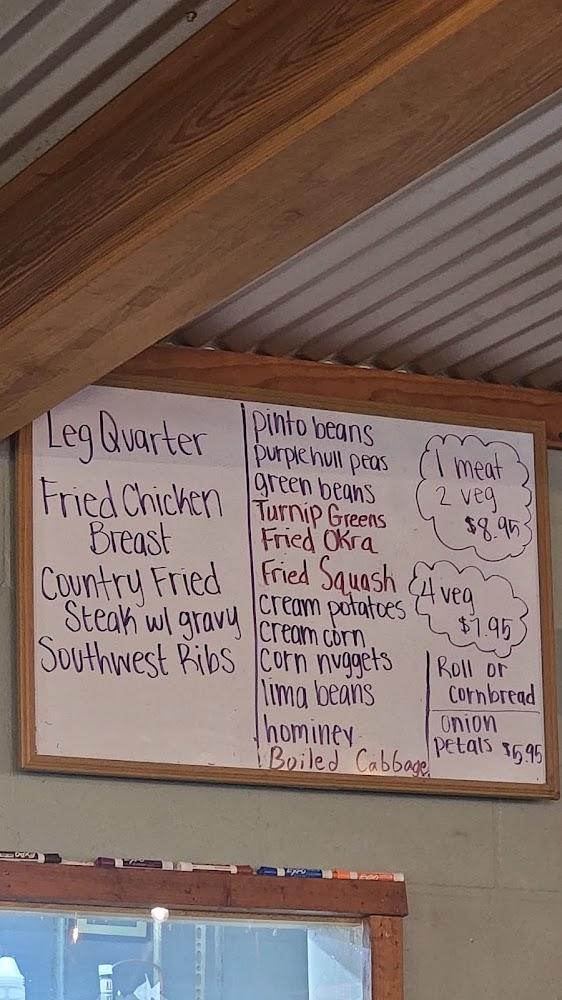 Leg Quarter
Fried Chicken
Breast
Country Fried
Steak w/ gravy
Southwest Ribs
pinto beans
purplehull peas
green beans
Turnip Greens
Fried Okra
Fried Squash
cream potatoes
cream corn
corn nuggets
lima beans
hominey
Boiled Cabbage
1 meat
2 veg
$8.95
4 veg
$7.95
Roll or
cornbread
onion
petals $5.95
EXPO